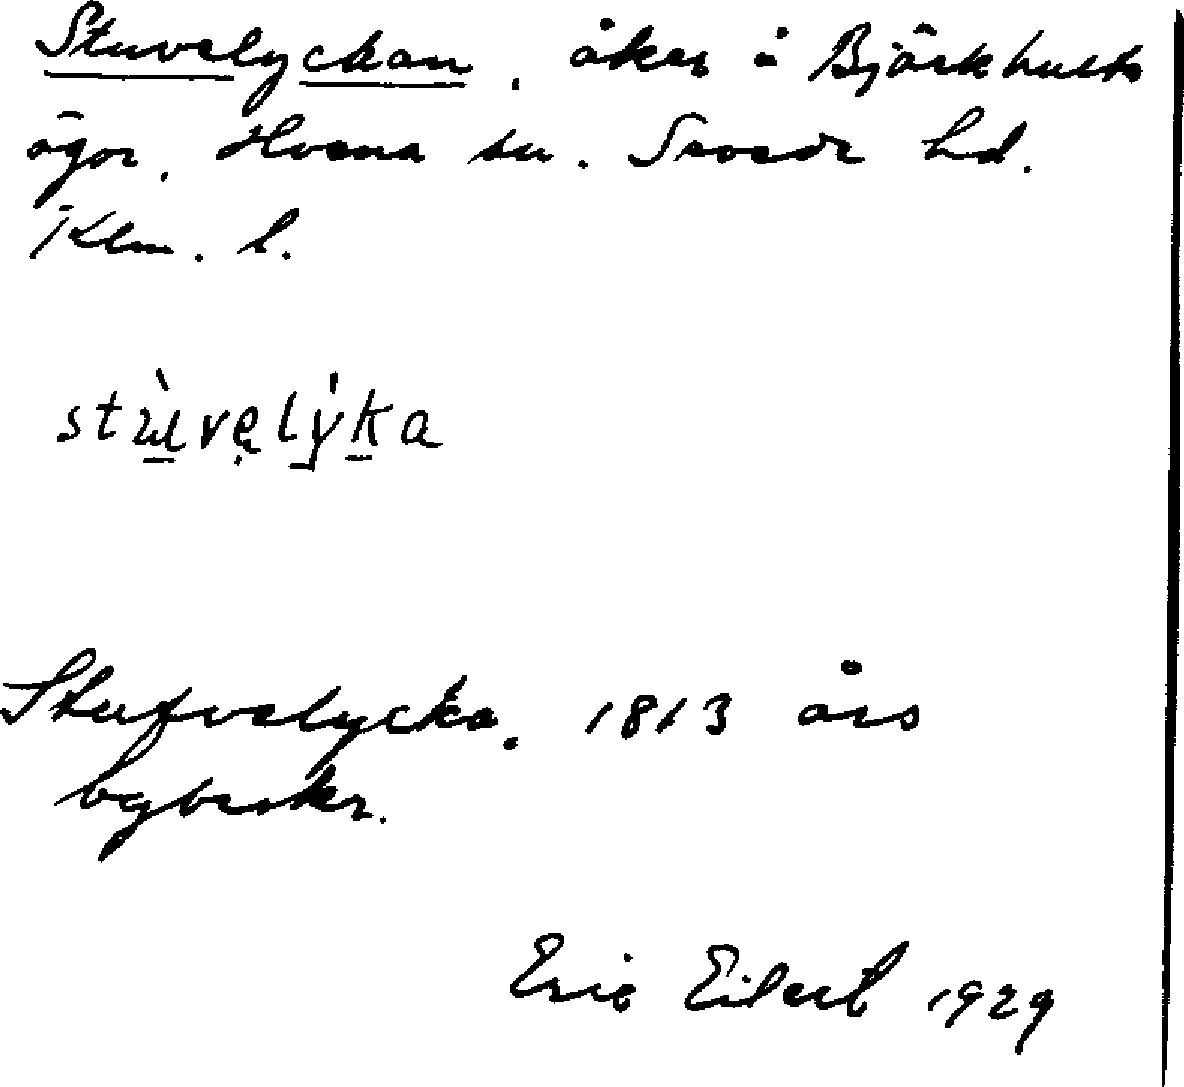 Stuvelyckan, åker å Björkhults
ägor. Hvena sn. Sevede hd.
Klm. l.
stùvelýka
Stufvelycka. 1813 års
bybeskr.
Eric Eilert 1929